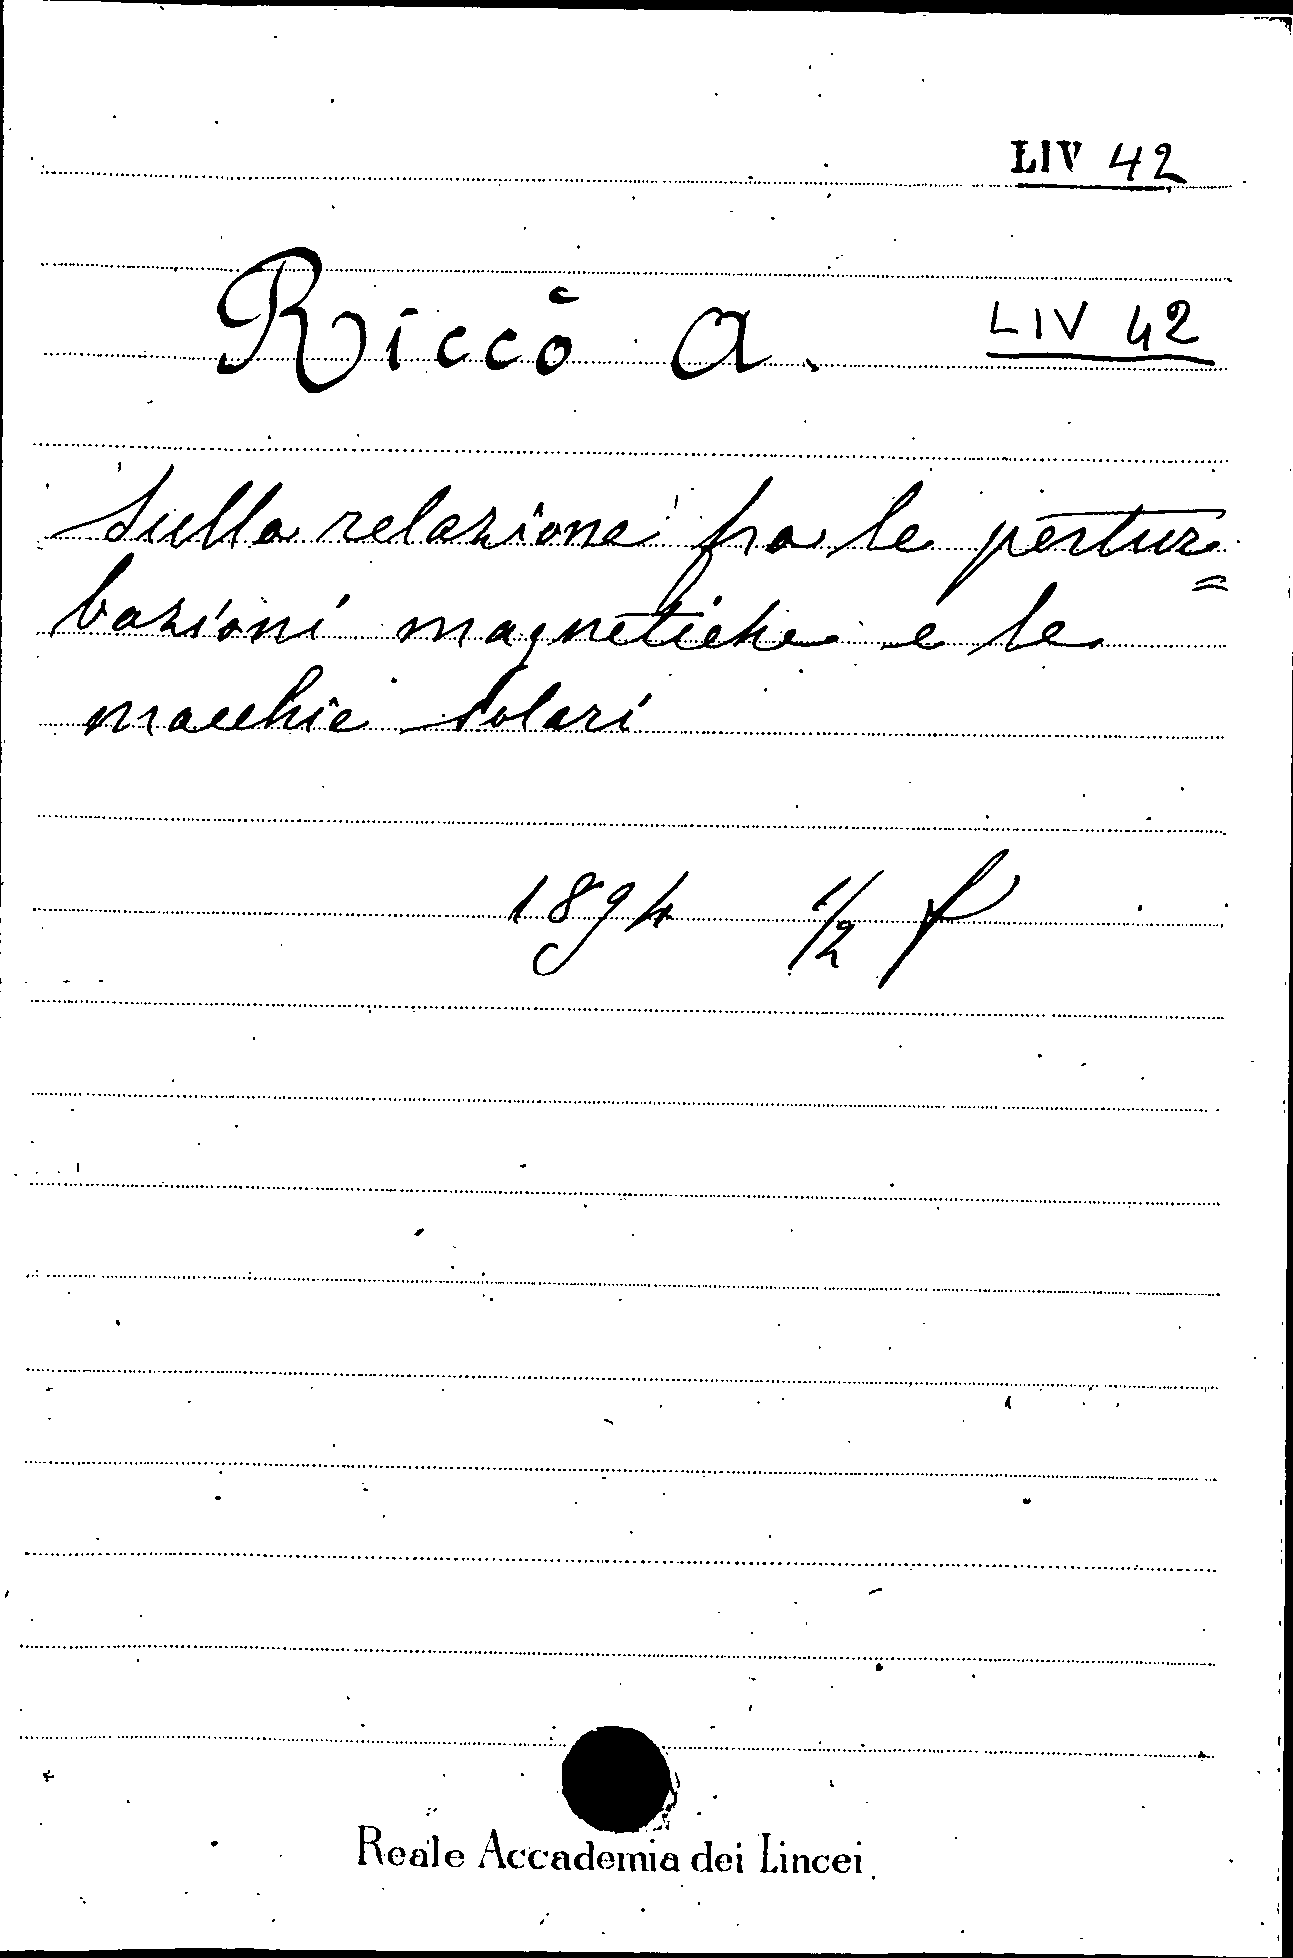 LIV 42
Riccò A. LIV 42
Sulla relazione fra le pertur=
bazioni magnetiche e le
macchie solari
1894 1/2 f
Reale Accademia dei Lincei